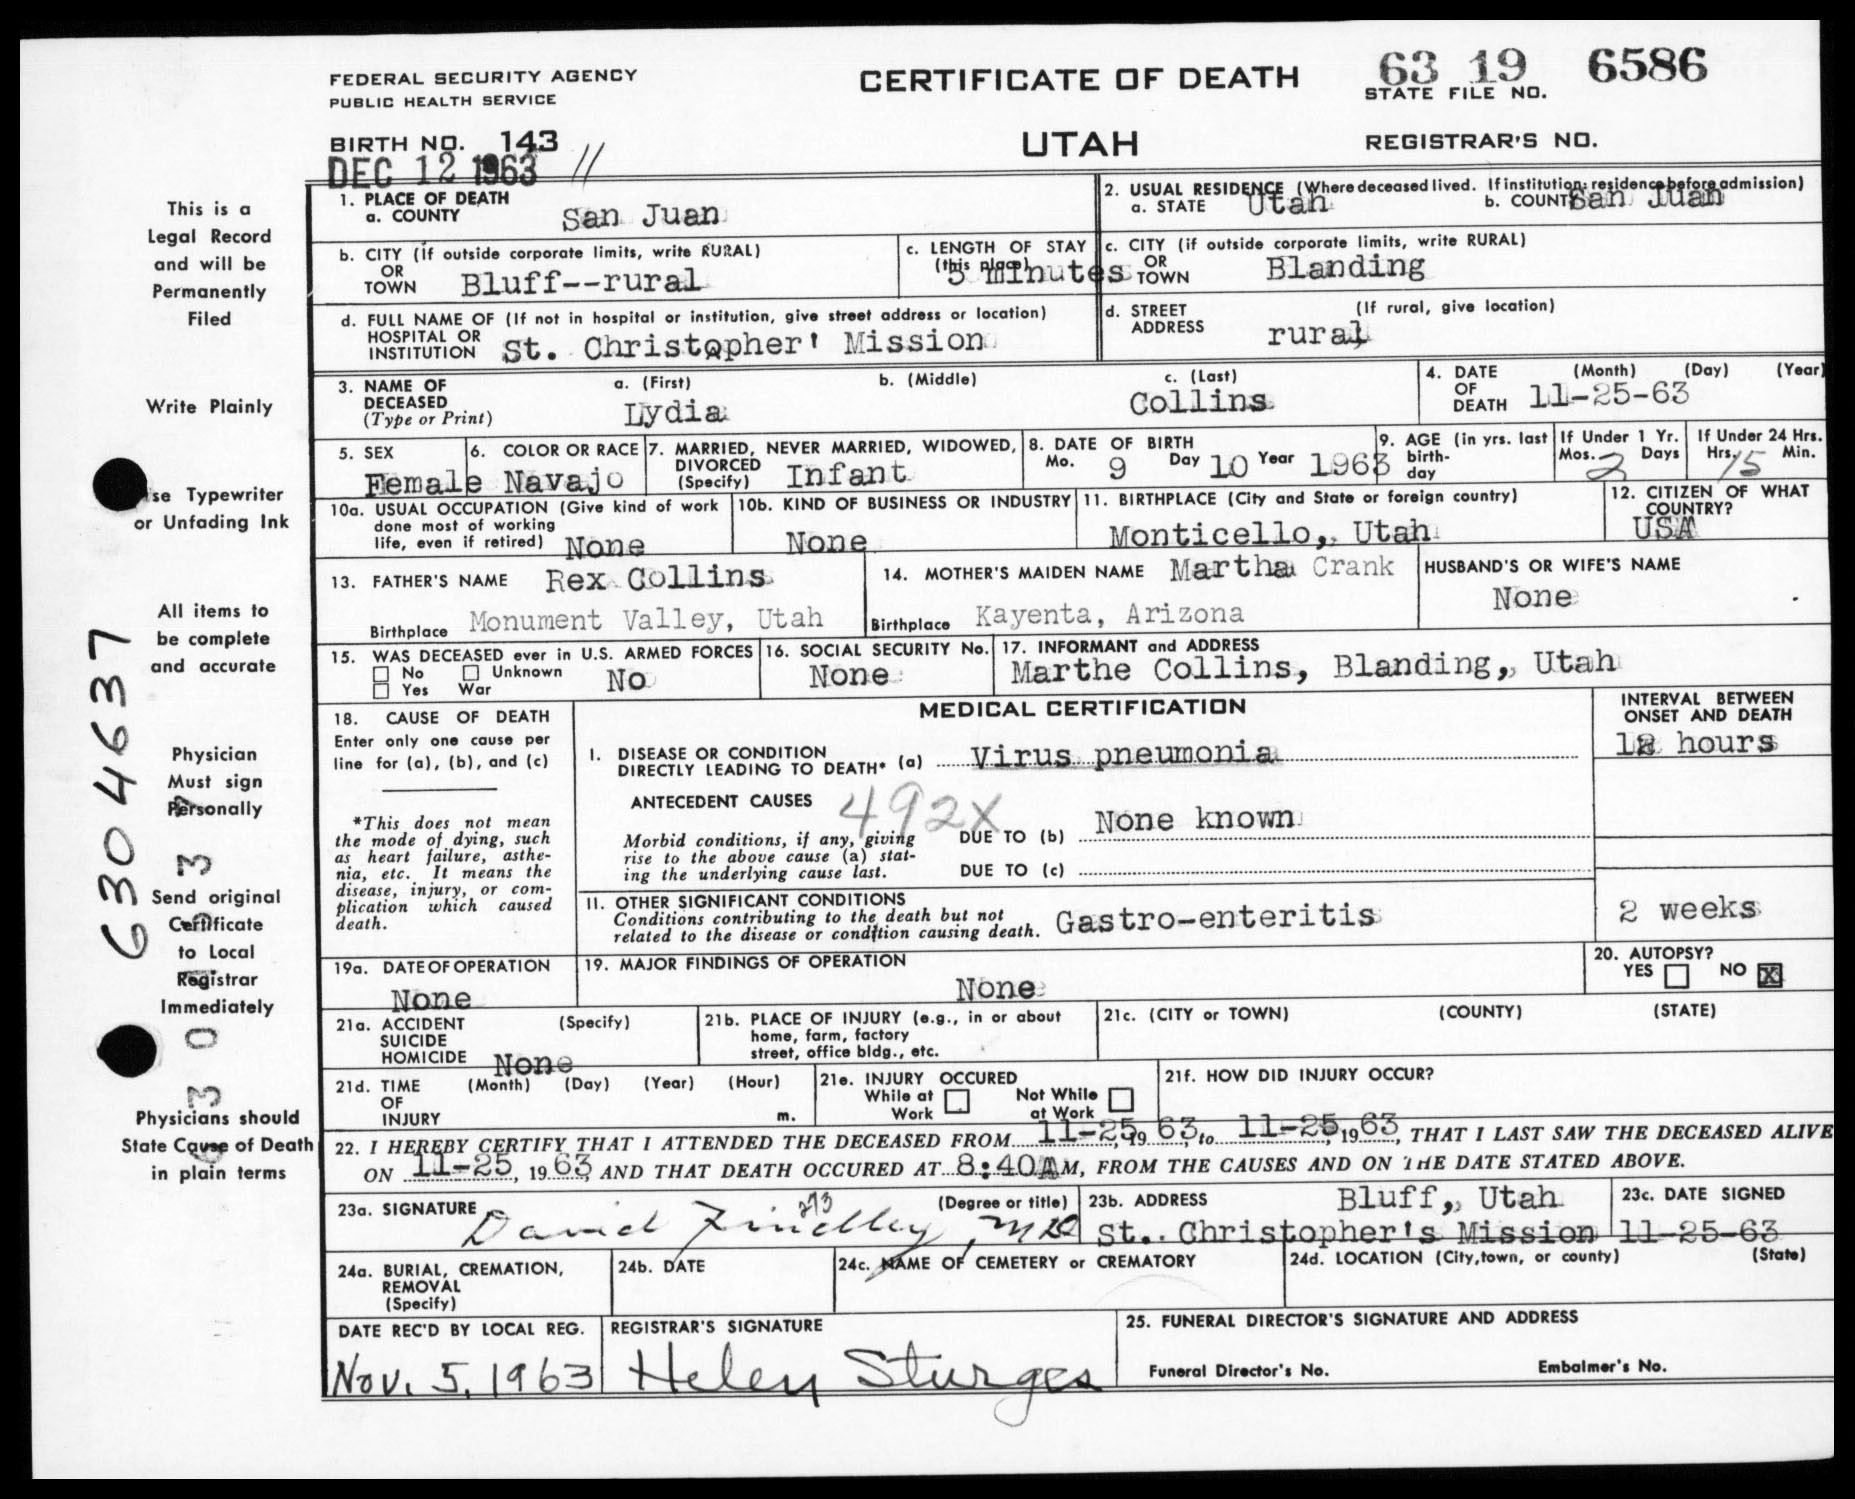 FEDERAL SECURITY AGENCY
PUBLIC HEALTH SERVICE
CERTIFICATE OF DEATH
63 19 6586
STATE FILE NO.
BIRTH NO. 143
UTAH
REGISTRAR'S NO.
DEC 12 1963 11
1. PLACE OF DEATH
a. COUNTY San Juan
2. USUAL RESIDENCE (Where deceased lived. If institution: residence before admission)
a. STATE Utah b. COUNTY San Juan
b. CITY (If outside corporate limits, write RURAL)
OR
TOWN Bluff--rural
c. LENGTH OF STAY
(this place)
5 minutes
c. CITY (if outside corporate limits, write RURAL)
OR
TOWN Blanding
d. FULL NAME OF (If not in hospital or institution, give street address or location)
HOSPITAL OR
INSTITUTION St. Christopher' Mission
d. STREET (If rural, give location)
ADDRESS rural,
3. NAME OF
DECEASED
(Type or Print)
a. (First) b. (Middle) c. (Last)
Lydia Collins
4. DATE (Month) (Day) (Year)
OF
DEATH 11-25-63
5. SEX
Female
6. COLOR OR RACE
Navajo
7. MARRIED, NEVER MARRIED, WIDOWED,
DIVORCED
(Specify) Infant
8. DATE OF BIRTH
Mo. 9 Day 10 Year 1963
9. AGE (in yrs. last
birth-
day
If Under 1 Yr.
Mos. 2 Days 15
If Under 24 Hrs.
Hrs. Min.
10a. USUAL OCCUPATION (Give kind of work
done most of working
life, even if retired) None
10b. KIND OF BUSINESS OR INDUSTRY
None
11. BIRTHPLACE (City and State or foreign country)
Monticello, Utah
12. CITIZEN OF WHAT
COUNTRY?
USA
13. FATHER'S NAME Rex Collins
Birthplace Monument Valley, Utah
14. MOTHER'S MAIDEN NAME Martha Crank
Birthplace Kayenta, Arizona
HUSBAND'S OR WIFE'S NAME
None
15. WAS DECEASED ever in U.S. ARMED FORCES
No Unknown
Yes War No
16. SOCIAL SECURITY No.
None
17. INFORMANT and ADDRESS
Marthe Collins, Blanding, Utah
18. CAUSE OF DEATH
Enter only one cause per
line for (a), (b), and (c)
*This does not mean
the mode of dying, such
as heart failure, asthe-
nia, etc. It means the
disease, injury, or com-
plication which caused
death.
MEDICAL CERTIFICATION
INTERVAL BETWEEN
ONSET AND DEATH
I. DISEASE OR CONDITION
DIRECTLY LEADING TO DEATH* (a) Virus pneumonia
12 hours
ANTECEDENT CAUSES 492X
Morbid conditions, if any, giving
rise to the above cause (a) stat-
ing the underlying cause last.
DUE TO (b) None known
DUE TO (c)
II. OTHER SIGNIFICANT CONDITIONS
Conditions contributing to the death but not
related to the disease or condition causing death. Gastro-enteritis
2 weeks
19a. DATE OF OPERATION
None
19. MAJOR FINDINGS OF OPERATION
None
20. AUTOPSY?
YES NO X
21a. ACCIDENT (Specify)
SUICIDE
HOMICIDE None
21b. PLACE OF INJURY (e.g., in or about
home, farm, factory
street, office bldg., etc.
21c. (CITY or TOWN) (COUNTY) (STATE)
21d. TIME (Month) (Day) (Year) (Hour)
OF
INJURY m.
21e. INJURY OCCURED
While at Work Not While at Work
21f. HOW DID INJURY OCCUR?
22. I HEREBY CERTIFY THAT I ATTENDED THE DECEASED FROM 11-25, 19 63, to 11-25, 19 63, THAT I LAST SAW THE DECEASED ALIVE
ON 11-25, 19 63 AND THAT DEATH OCCURED AT 8:40AM, FROM THE CAUSES AND ON THE DATE STATED ABOVE.
23a. SIGNATURE (Degree or title)
273
David Findlley, MD
23b. ADDRESS Bluff, Utah
St. Christopher's Mission
23c. DATE SIGNED
11-25-63
24a. BURIAL, CREMATION,
REMOVAL
(Specify)
24b. DATE
24c. NAME OF CEMETERY or CREMATORY
24d. LOCATION (City, town, or county) (State)
DATE REC'D BY LOCAL REG.
Nov. 5, 1963
REGISTRAR'S SIGNATURE
Helen Sturges
25. FUNERAL DIRECTOR'S SIGNATURE AND ADDRESS
Funeral Director's No. Embalmer's No.
This is a
Legal Record
and will be
Permanently
Filed
Write Plainly
se Typewriter
or Unfading Ink
All items to
be complete
and accurate
Physician
Must sign
Personally
Send original
Certificate
to Local
Registrar
Immediately
Physicians should
State Cause of Death
in plain terms
6304637